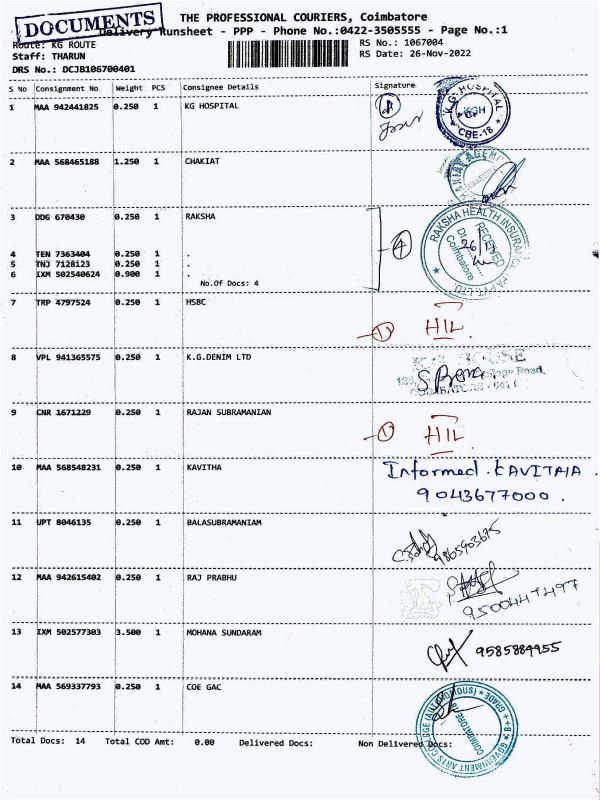 DOCUMENTS
THE PROFESSIONAL COURIERS, Coimbatore
Delivery Runsheet - PPP - Phone No.:0422-3505555 - Page No.:1
Route: KG ROUTE
RS No.: 1067004
Staff: THARUN
RS Date: 26-Nov-2022
DRS No.: DCJB106700401
S No Consignment No Weight PCS Consignee Details Signature
1 MAA 942441825 0.250 1 KG HOSPITAL
KG HOSPITAL
KGH
CBE-18
2 MAA 568465188 1.250 1 CHAKIAT
3 DDG 670430 0.250 1 RAKSHA
RAKSHA HEALTH INSURANCE
RECEIVED
Coimbatore
4 TEN 7363404 0.250 1 .
5 TNJ 7128123 0.250 1 .
6 IXM 502540624 0.900 1 .
No.Of Docs: 4
4
7 TRP 4797524 0.250 1 HSBC
1 HIL
8 VPL 941365575 0.250 1 K.G.DENIM LTD
9 CNR 1671229 0.250 1 RAJAN SUBRAMANIAN
1 HIL
10 MAA 568548231 0.250 1 KAVITHA
Informed. KAVITAIA.
9043677000.
11 UPT 8046135 0.250 1 BALASUBRAMANIAM
12 MAA 942615402 0.250 1 RAJ PRABHU
13 IXM 502577303 3.500 1 MOHANA SUNDARAM
9585884955
14 MAA 569337793 0.250 1 COE GAC
GOVERNMENT ARTS COLLEGE (AUTONOMOUS)
COIMBATORE-18
Total Docs: 14 Total COD Amt: 0.00 Delivered Docs: Non Delivered Docs: